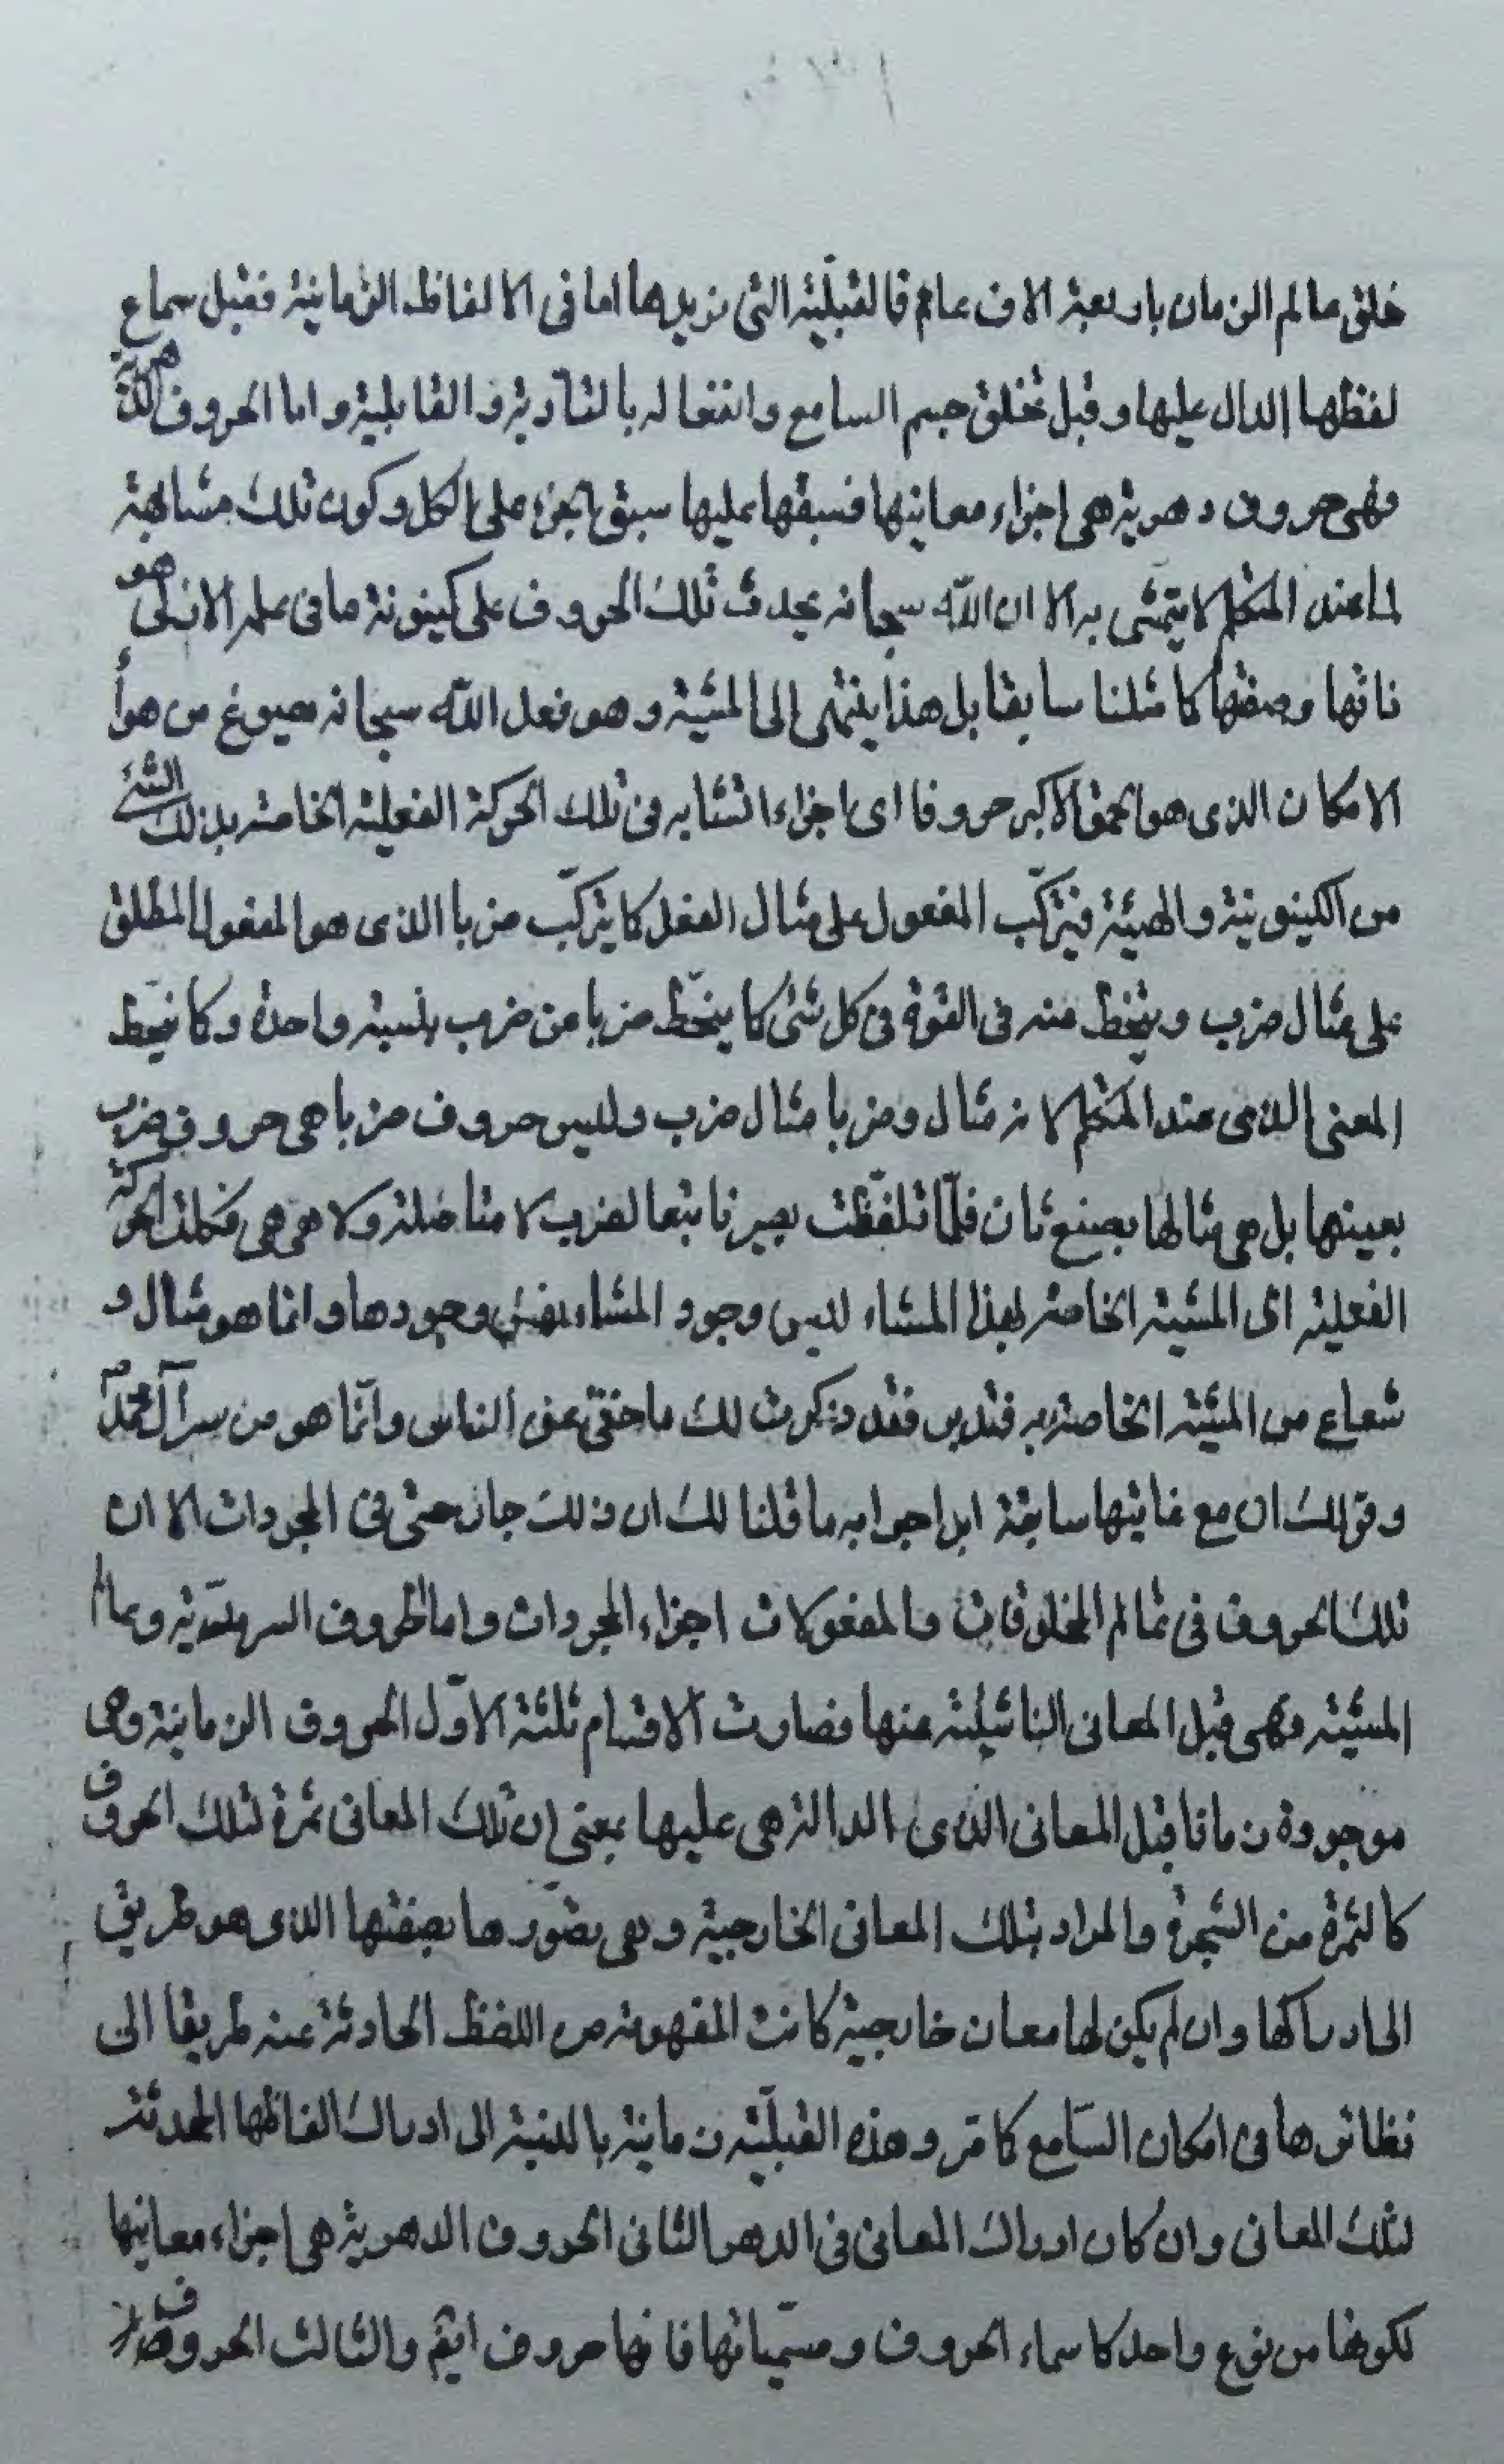 خلق عالم الزمان باربعة الاف عام فالقبليّة التى نريدها اما فى الالفاظ الزمانية فقبل سماع
لفظها الدال عليها وقبل تخلق جسم السامع وانفعاله بالتأدية والقابلية واما الحروف الدهرية
فهى حروف دهرية هى اجزاء معانيها فسبقها عليها سبق الجزء على الكل وكون تلك مشابهة
لما عند المتكلم لا يتمشى به الا ان الله سبحانه يحدث تلك الحروف على كينونة ما فى علمه الازلى هو
ذاتها وصفتها كما مثلنا سابقا بل هذا ينتهى الى المشية وهو فعل الله سبحانه مصوغ من هواء
الامكان الذى هو العمق الاكبر حروفا اى اجزاء تتشابه فى تلك الحركة الفعلية الخاصة بذلك الشئ
من الكينونية والهيئة فيتركّب المفعول على مثال الفعل كما يتركّب ضربا الذى هو المفعول المطلق
على مثال ضرب وينحط منه فى القوة فى كل شئ كما ينحّط ضربا من ضرب بنسبة واحدة وكما ينحط
المعنى الذى عند المتكلم لانه مثال وضربا مثال ضرب وليس حروف ضربا هى حروف ضرب
بعينها بل هى مثالها بصنع ثان فلمّا تلفّظت بصيرنا تبعا لضرب لا متاصلة ولا هى هى فكذلك الحركة
الفعلية اى المشية الخاصة لهذا المشاء ليس وجود المشاء بنفس وجودها وانما هو مثال و
شعاع من المشية الخاصة به فتدبر فقد ذكرت لك ما خفى عن الناس وانّما هو من سر آل محمد ص
وقولك ان مع غايتها سابقة ابدا جوابه ما قلنا لك ان ذلك جار حتى فى المجردات الا ان
تلك الحروف فى عالم المخلوقات والمفعولات اجزاء المجردات واما الحروف السرمديّة وعالم
المشية فهى قبل المعانى الناشئة عنها فصارت الاقسام ثلثة الاوّل الحروف الزمانية وهى
موجودة زمانا قبل المعانى الذى الدالة هى عليها بمعنى ان تلك المعانى ثمرة لتلك الحروف
كالثمرة من الشجرة والمراد بتلك المعانى الخارجية وهى بتصوّرها بصفتها الذى هو طريق
الى ادراكها وان لم يكن لها معان خارجية كانت المفهومة من اللفظ الحادثة عنه طريقا الى
نظائرها فى امكان السّامع كما مر وهذه القبليّة زمانية بالنسبة الى ادراك الفاظها المحدثة
لتلك المعانى وان كان ادراك المعانى فى الدهر الثانى الحروف الدهرية هى اجزاء معانيها
لكونها من نوع واحد كاسماء الحروف ومسمّياتها فانها حروف ايضم والثالث الحروف